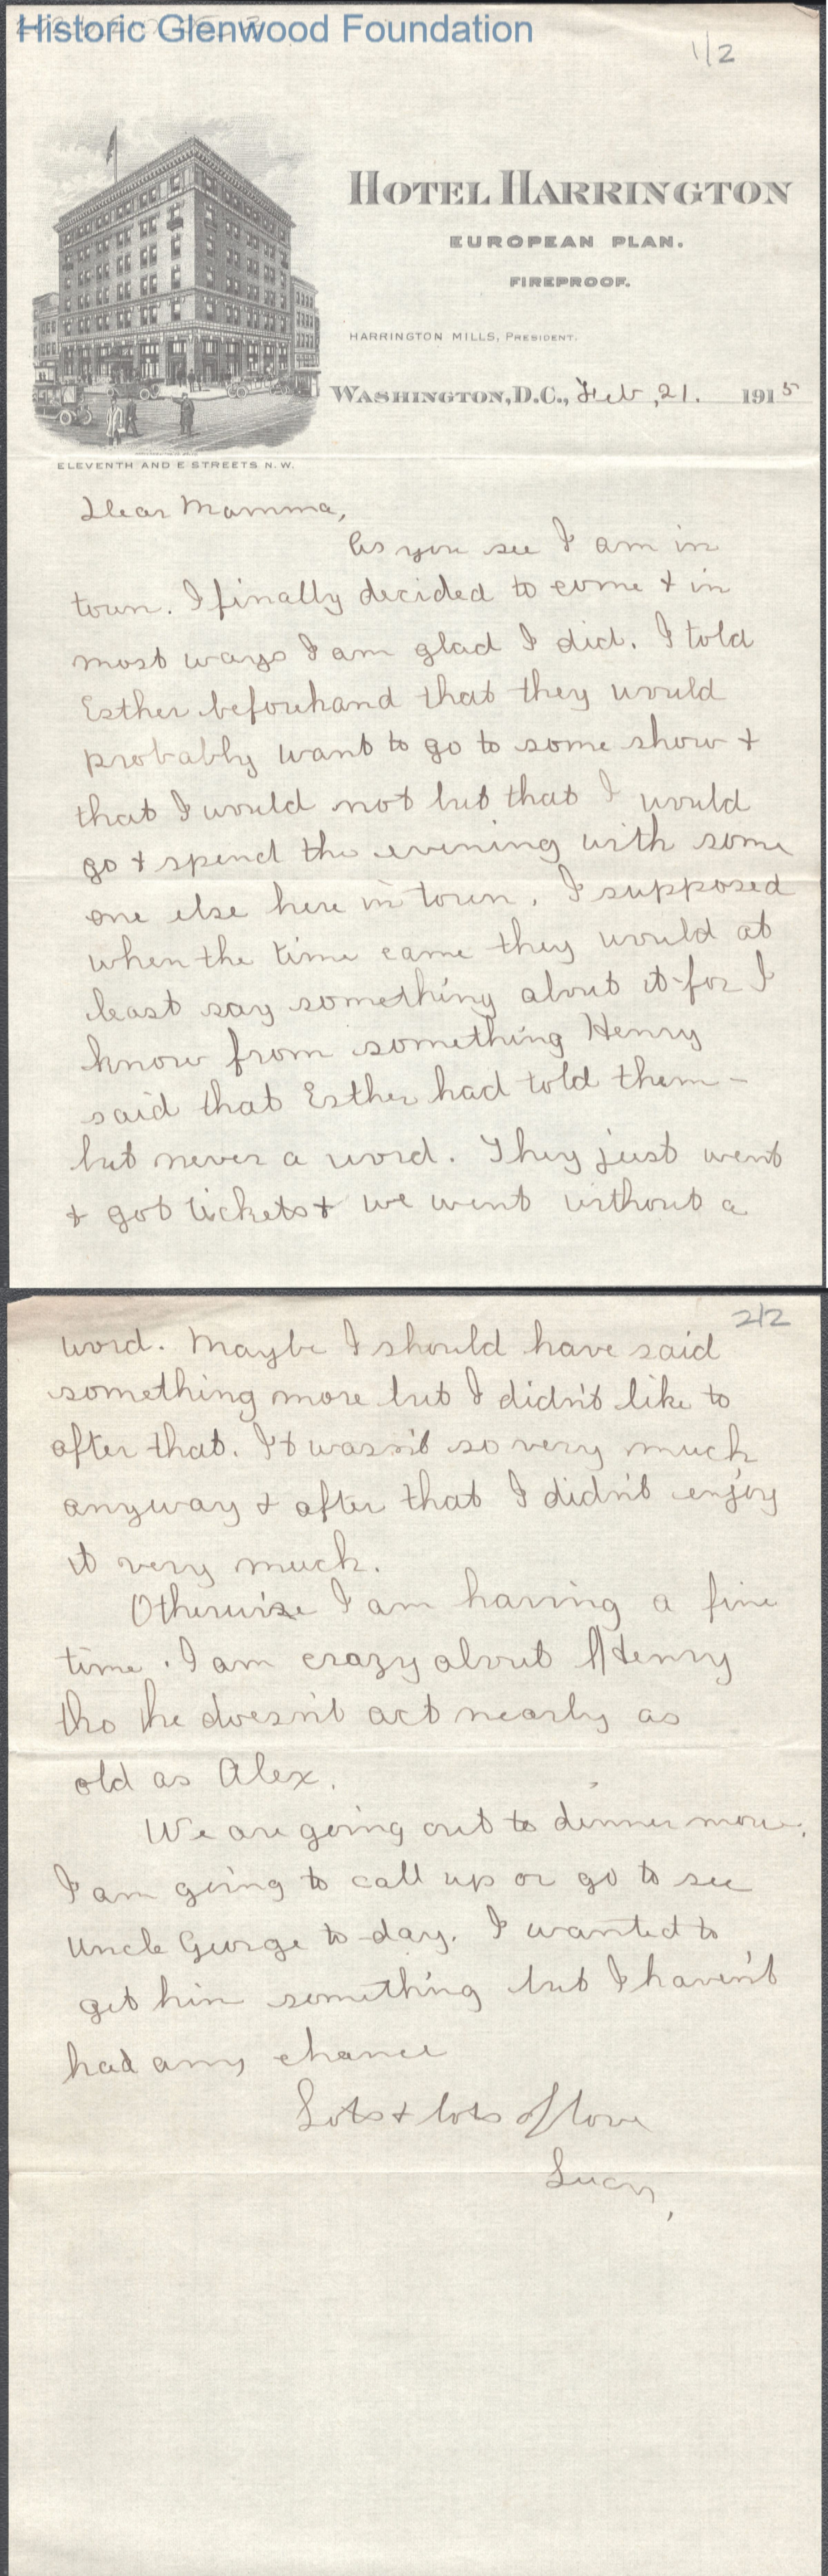 Historic Glenwood Foundation
1/2
HOTEL HARRINGTON
EUROPEAN PLAN.
FIREPROOF.
HARRINGTON MILLS, PRESIDENT.
WASHINGTON, D.C., Feb, 21. 1915
ELEVENTH AND E STREETS N.W.
Dear Mamma,
As you see I am in
town. I finally decided to come & in
most ways I am glad I did. I told
Esther beforehand that they would
probably want to go to some show &
that I would not but that I would
go & spend the evening with some
one else here in town. I supposed
when the time came they would at
least say something about it-for I
know from something Henry
said that Esther had told them-
but never a word. They just went
& got tickets & we went without a
2/2
word. Maybe I should have said
something more but I didn't like to
after that. It wasn't so very much
anyway & after that I didn't enjoy
it very much.
Otherwise I am having a fine
time. I am crazy about Henry
tho he doesn't act nearly as
old as Alex.
We are going out to dinner now.
I am going to call up or go to see
Uncle George to-day. I wanted to
get him something but I haven't
had any chance
Lots & lots of love
Lucy,